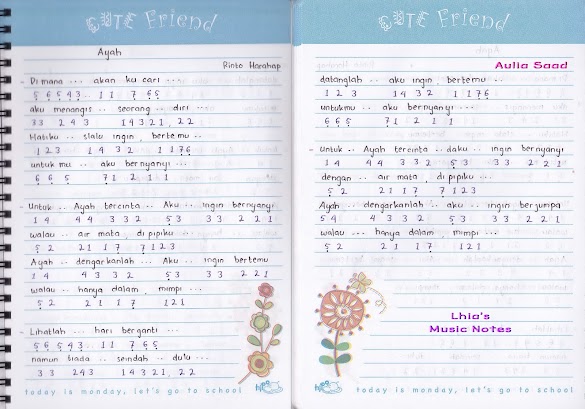 CUTE Friend
Ayah
Rinto Harahap
- Di mana ... akan ku cari ...
5 6 5 4 3 .. 1 1 7 6 5
aku menangis .. seorang .. diri ...
33 2 4 3 1 4 3 2 1 , 2 2
Hatiku .. slalu ingin bertemu ..
1 2 3 1 4 3 2 1 1 7 6
untuk mu .. aku bernyanyi ...
6 6 5 7 1 2 1 1
- Untuk .. Ayah tercinta .. Aku .. ingin bernyanyi
1 4 4 4 3 3 2 5 3 3 3 2 2 1
walau .. air mata .. di pipiku ...
5 2 2 1 1 7 7 1 2 3
Ayah .. dengarkanlah ... Aku .. ingin bertemu
1 4 4 3 3 2 5 3 3 3 2 2 1
walau .. hanya dalam mimpi ...
5 2 2 1 1 7 1 2 1
- Lihatlah ... hari berganti ...
5 6 5 4 3 .. 1 1 7 6 5
namun tiada .. seindah .. dulu ...
3 3 2 4 3 1 4 3 2 1 , 2 2
today is monday, let's go to school
CUTE Friend
Aulia Saad
datanglah .. aku ingin bertemu ..
1 2 3 1 4 3 2 1 1 7 6
untukmu .. aku bernyanyi ...
6 6 5 7 1 2 1 1
- Untuk .. Ayah tercinta .. daku .. ingin bernyanyi
1 4 4 4 3 3 2 5 3 3 3 2 2 1
dengan .. air mata di pipiku ...
5 2 2 1 1 7 7 1 2 3
Ayah .. dengarkanlah .. aku .. ingin berjumpa
5 4 4 3 3 2 5 3 3 3 2 2 1
walau ... hanya dalam mimpi ...
5 2 2 1 1 7 1 2 1
Lhia's
Music Notes
today is monday, let's go to school